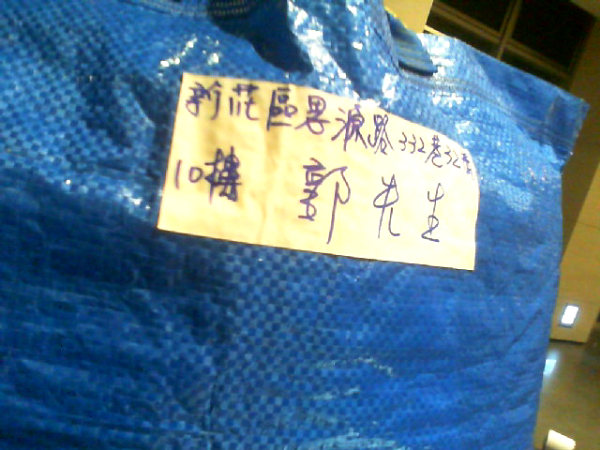 新莊區思源路332巷32號
10樓 郭先生